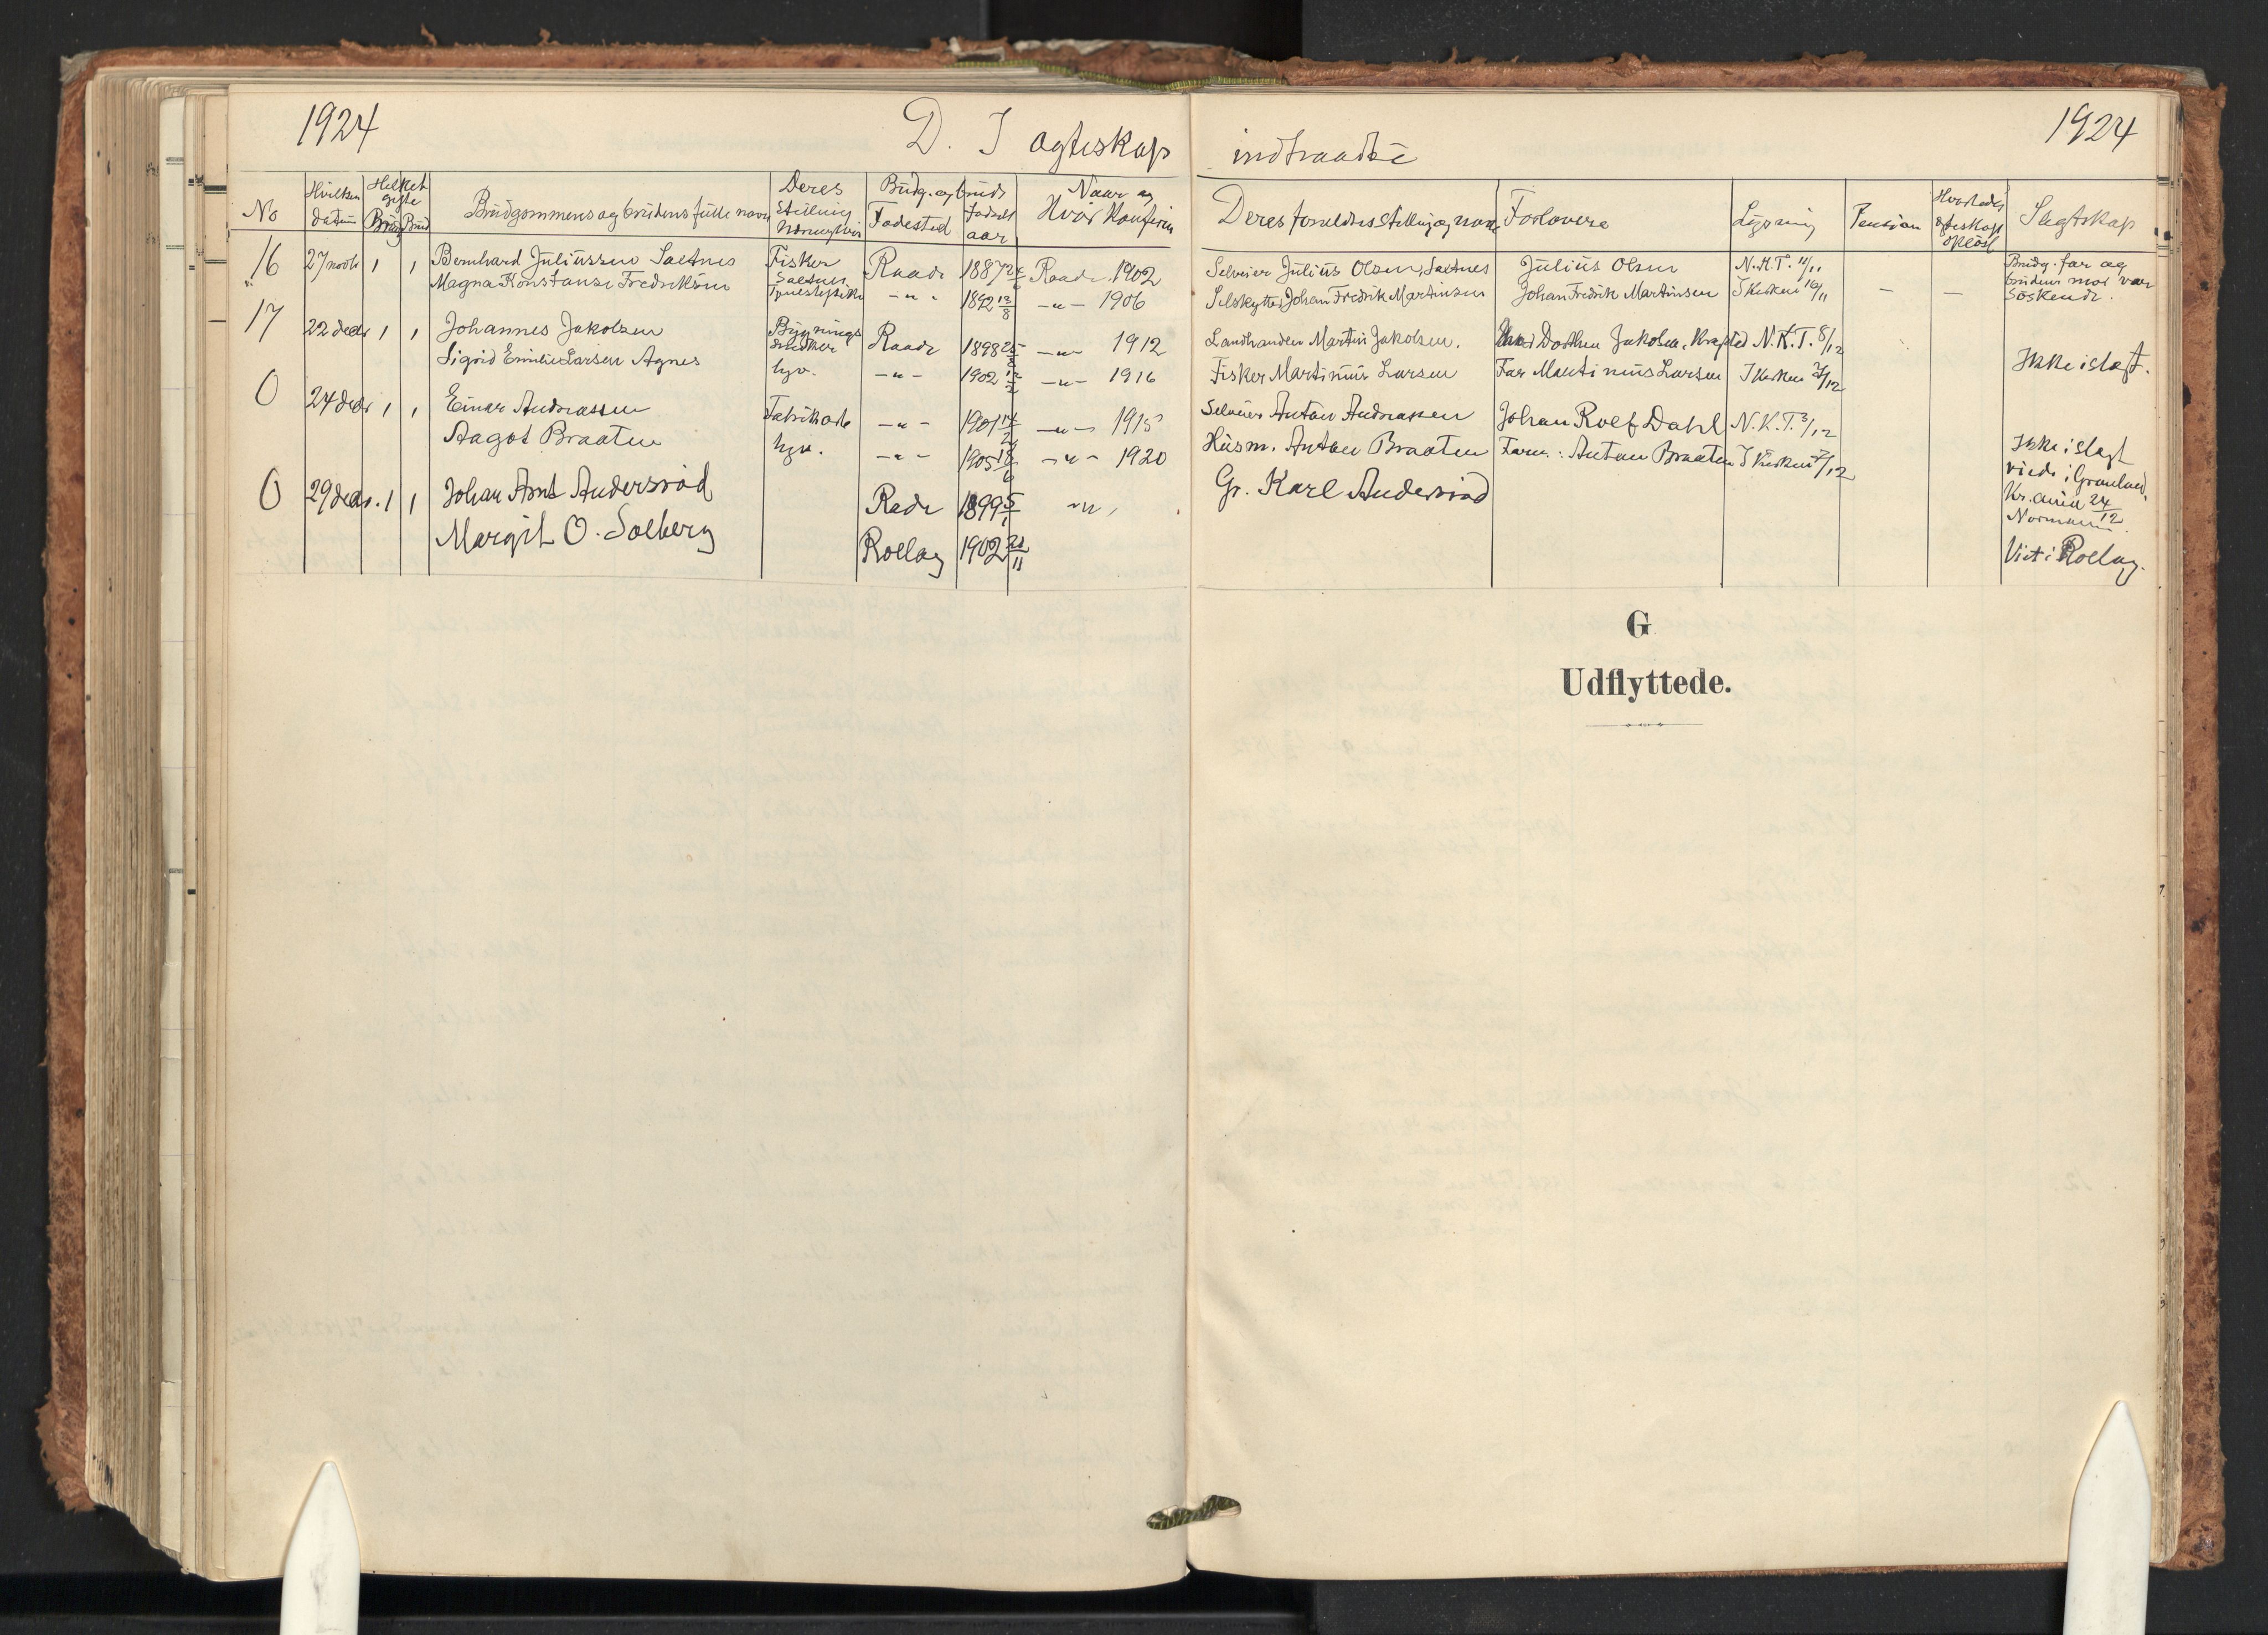 1924
D. I ægteskap indtraadte
1924
No
Hvilken datum
Hvilket gifte
Brudg Brud
Brudgommens og brudens fulde navn
Deres Stilling
Brudg. og bruds
Fødested
fødsels aar
Naar og Hvor konfirm
Deres forældres stilling og navn
Forlovere
Lysning
Pension
ægteskap opløst
Slegtskap
16 27 novbr 1 1 Bernhard Juliussen Saltnes Fisker Saltnes Raade 1887 Raade 1902 Selveier Julius Olsen, Saltnes Julius Olsen N.K.T. 11/11 Brudg. far og
Magna Konstanse Fredriksen Tyenestepike -"- 1892 13/8 -"- 1906 Selskytter Johan Fredrik Martinsen Johan Fredrik Martinsen I kirken 16/11 – – brudens mor var søskende.
17 22 decbr 1 1 Johannes Jakobsen Bygnings snekker Raade 1898 -"- 1912 Landhandler Martin Jakobsen. Dorthea Jakobsen, N.K.T. 8/12
Sigrid Emilie Larsen Agnes hjv. -"- 1902 -"- 1916 Fisker Martinius Larsen Far Martinius Larsen I kirken 7/12 Ikke i slegt.
0 24 decbr 1 1 Einar Andreassen Fabrikarb -"- 1901 -"- 1915 Selveier Anton Andreassen Johan Rolf Dahl N.K.T. 3/12
Aagot Braaten hjv. -"- 1905 18/6 -"- 1920 Husm. Anton Braaten Farm.: Anton Braaten I kirken 7/12 Ikke i slegt
viede i Grønland,
Kr.ania 24/12
Normann
0 29 decbr. 1 1 Johan Arnt Andersrød Rade 1899 5/1 -"- Gr. Karl Andersrød
Margit O. Solberg Rollag 1902 Viet i Rollag.
G
Udflyttede.